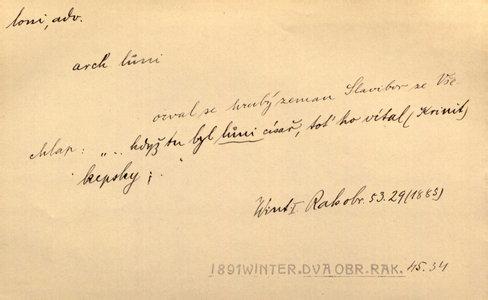 loni, adv.
arch lůni
ozval se hrubý zeman Slavibor ze Vše
chlap: „ .. když tu byl lůni císař, toť ho vítal (Krinit)
kepsky ; "
Wint I. Rakobr. 53. 29 (1883)
1891WINTER.DVA OBR. RAK. 45. 34